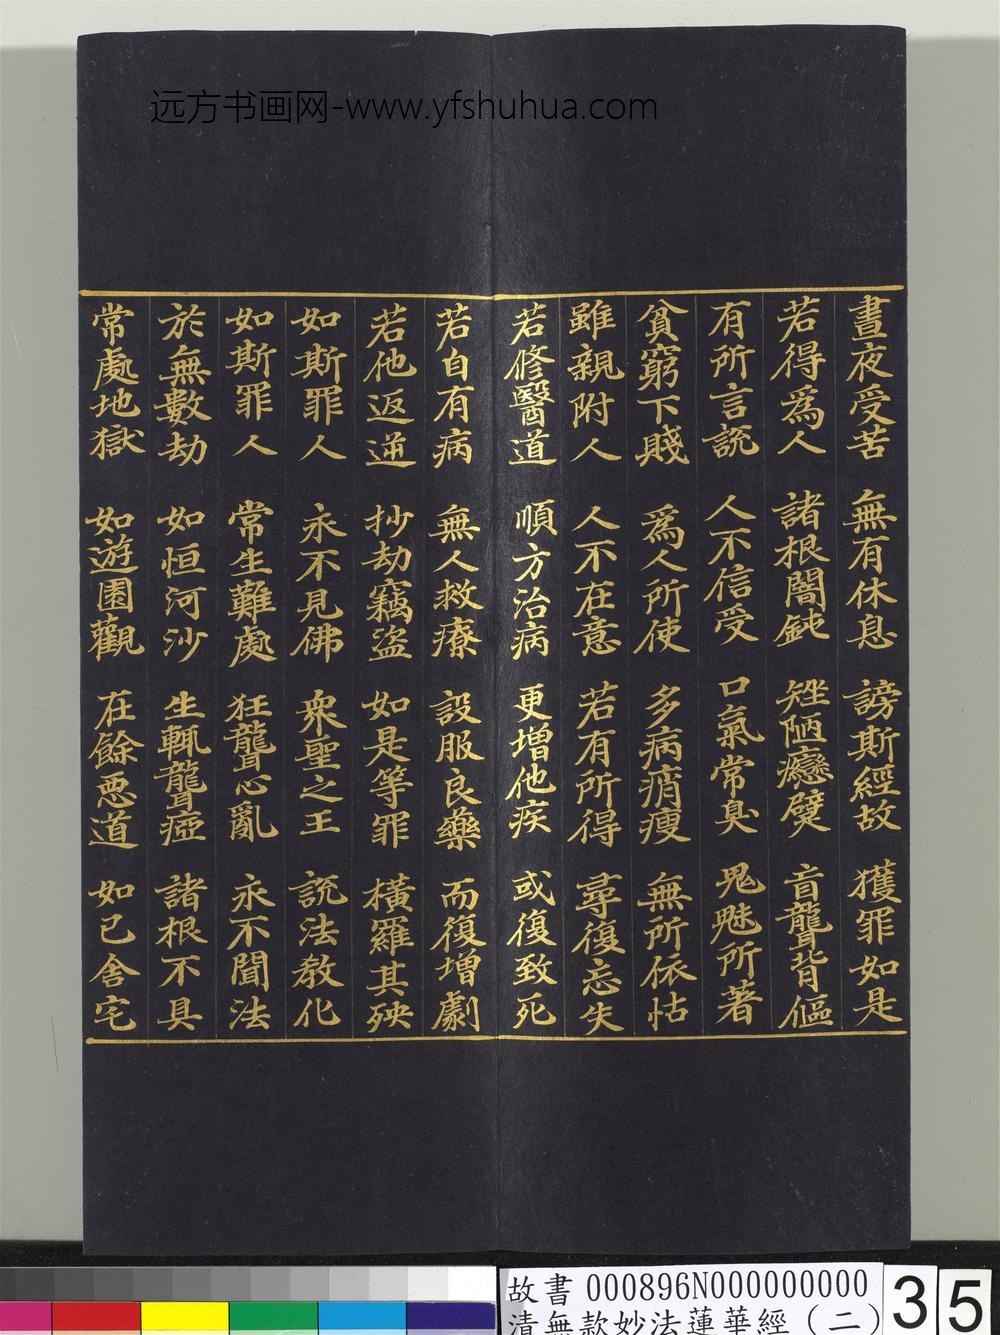 远方书画网-www.yfshuhua.com
晝夜受苦 無有休息 謗斯經故 獲罪如是
若得爲人 諸根闇鈍 矬陋癵躄 盲聾背傴
有所言說 人不信受 口氣常臭 鬼魅所著
貧窮下賤 爲人所使 多病痟瘦 無所依怙
雖親附人 人不在意 若有所得 尋復忘失
若修醫道 順方治病 更增他疾 或復致死
若自有病 無人救療 設服良藥 而復增劇
若他返逆 抄劫竊盜 如是等罪 橫羅其殃
如斯罪人 永不見佛 衆聖之王 說法教化
如斯罪人 常生難處 狂聾心亂 永不聞法
於無數劫 如恒河沙 生輒聾瘂 諸根不具
常處地獄 如遊園觀 在餘惡道 如己舍宅
故書 000896N000000000 35
清無款妙法蓮華經（二）